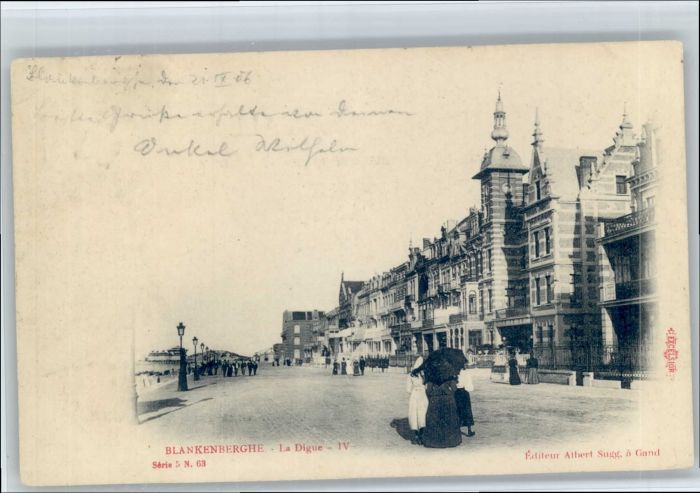 Blankenberghe, den 21. IX 06
Grüße erhalte von Deinem
Onkel Wilhelm
BLANKENBERGHE - La Digue - IV
Série 5 N. 63
Éditeur Albert Sugg, à Gand